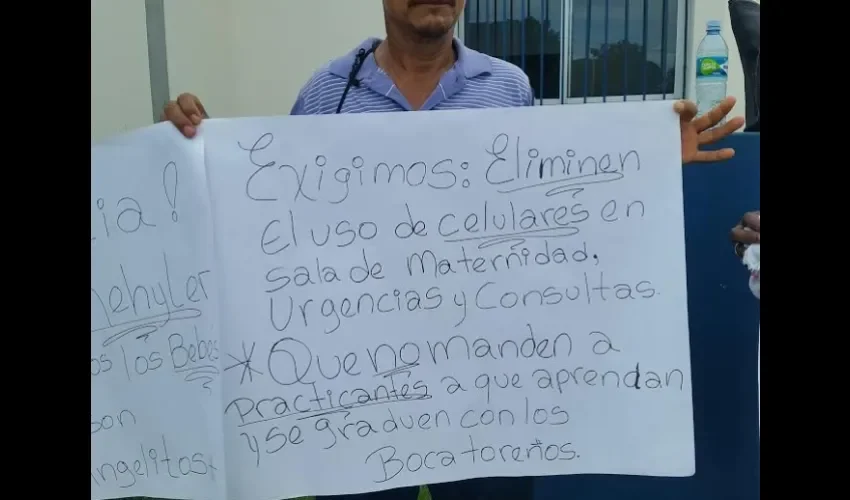 ia!
ehyler
os los Bebes
son
Angelitos
Exigimos: Eliminen
El uso de celulares en
sala de Maternidad,
Urgencias y Consultas.
* Que no manden a
practicantes a que aprendan
y se graduen con los
Bocatoreños.